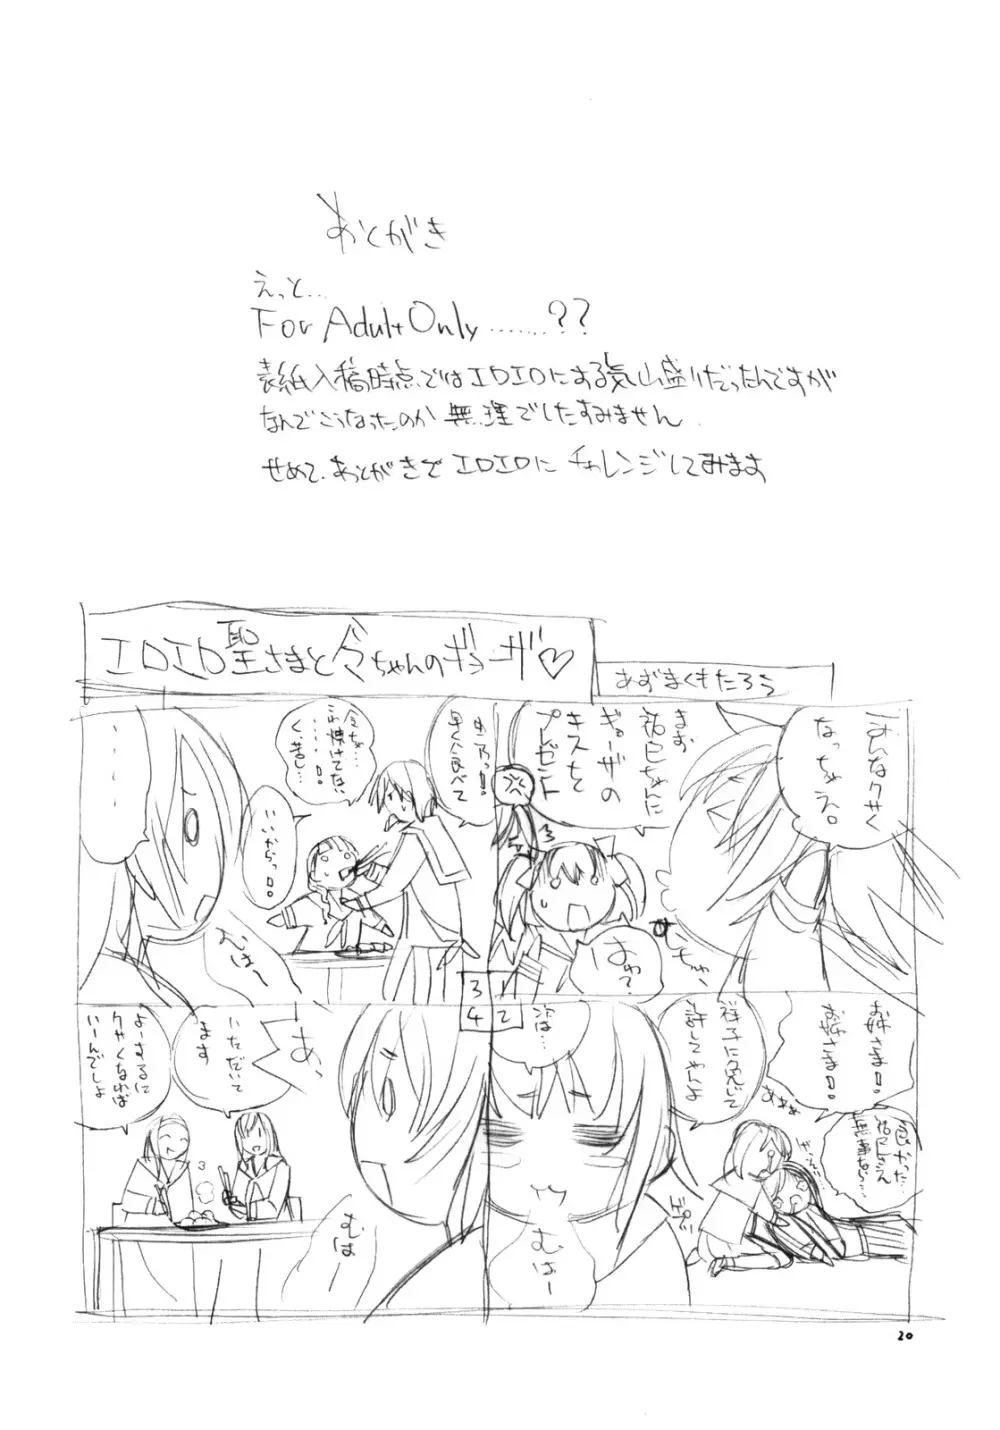 あとがき
えっと…
For Adult Only ……??
表紙入稿時点ではエロエロにする気山盛りだったんですが
なんでこうなったのか無理でしたすみません
せめて、あとがきでエロエロにチャレンジしてみます
エロエロ聖さまと令ちゃんのギョーザ♡
あずまくもたろう
みんなクサく
なっちゃえ。
まあ
祐巳ちゃんに
ギョーザの
キスを
プレゼント
はわ?
むちゅー
1
お姉さま!
お姉さま!
良かった…
祐巳さん
無事なら…
あああ
祥子に免じて
許してやんよ
ビクッ
次は…
むはー
2
由乃っ!
早く食べて
令ちゃ…
これ焼けてな…
……!
く、苦し…
いいからっ!
……
むはー
3
あ、
いただいて
ます
よーするに
クサくなれば
いーんでしょ
むはー
4
20